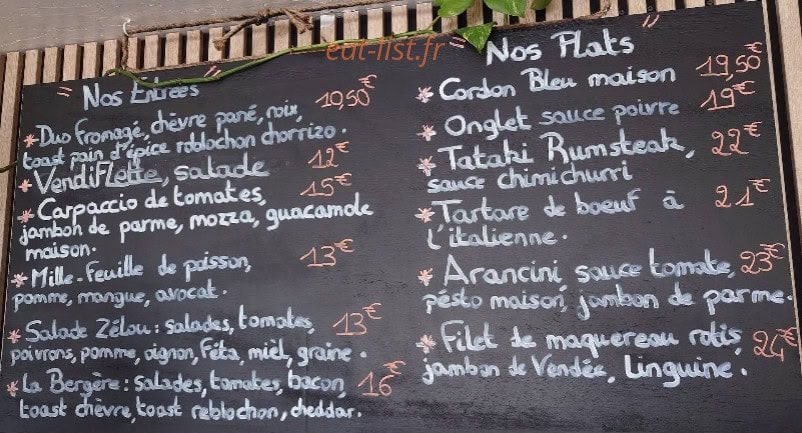 eat-list.fr
" Nos Entrées "
* Duo fromagé, chèvre pané, noix, 10,50€
toast pain d'épice roblochon chorrizo.
* VendiFlette, salade 12€
* Carpaccio de tomates, 15€
jambon de parme, mozza, guacamole
maison.
* Mille-feuille de poisson, 13€
pomme, mangue, avocat.
* Salade Zélou: salades, tomates, 13€
poivrons, pomme, oignon, Féta, miel, graine.
* La Bergère: salades, tomates, bacon, 16€
toast chèvre, toast reblochon, cheddar.
" Nos Plats "
* Cordon Bleu maison 19,50€
* Onglet sauce poivre 19€
* Tataki Rumsteak, 22€
sauce chimichurri
* Tartare de boeuf à 21€
l'italienne.
* Arancini, sauce tomate, 23€
pésto maison, jambon de parme.
* Filet de maquereau rotis, 24€
jambon de Vendée, Linguine.